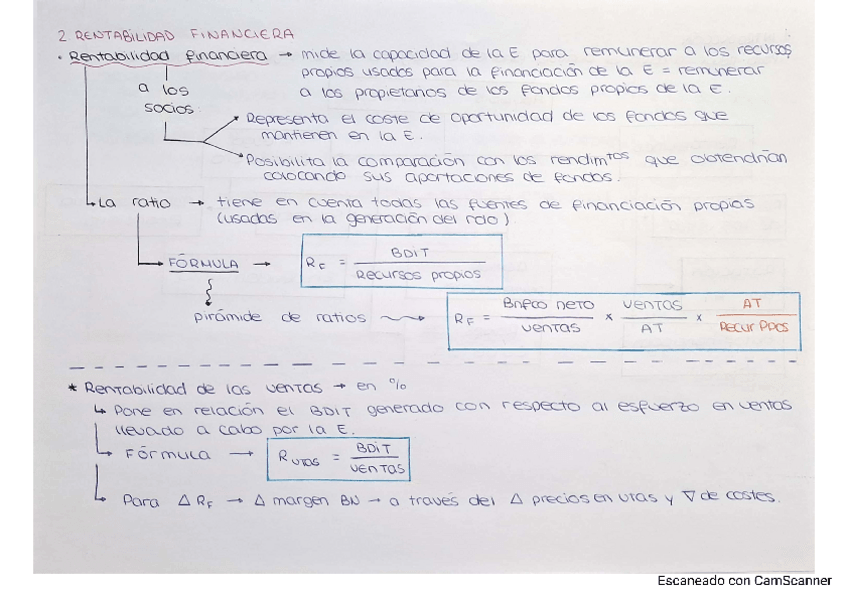 2 RENTABILIDAD FINANCIERA
• Rentabilidad financiera → mide la capacidad de la E para remunerar a los recursos
propios usados para la financiación de la E = remunerar
a los propietarios de los fondos propios de la E.
a los
socios
Representa el coste de oportunidad de los fondos que
mantienen en la E.
Posibilita la comparación con los rendimtos que obtendrían
colocando sus aportaciones de fondos.
La ratio → tiene en cuenta todas las fuentes de financiación propias
(usadas en la generación del rdo)
FÓRMULA → RF = BDIT / Recursos propios
pirámide de ratios → RF = Bnfco neto / ventas x ventas / AT x AT / Recur PPOS
* Rentabilidad de las ventas → en %
↳ Pone en relación el BDIT generado con respecto al esfuerzo en ventas
llevado a cabo por la E.
Fórmula → R vtas = BDIT / ventas
Para Δ RF → Δ margen BN → a través del Δ precios en vtas y ∇ de costes.
Escaneado con CamScanner